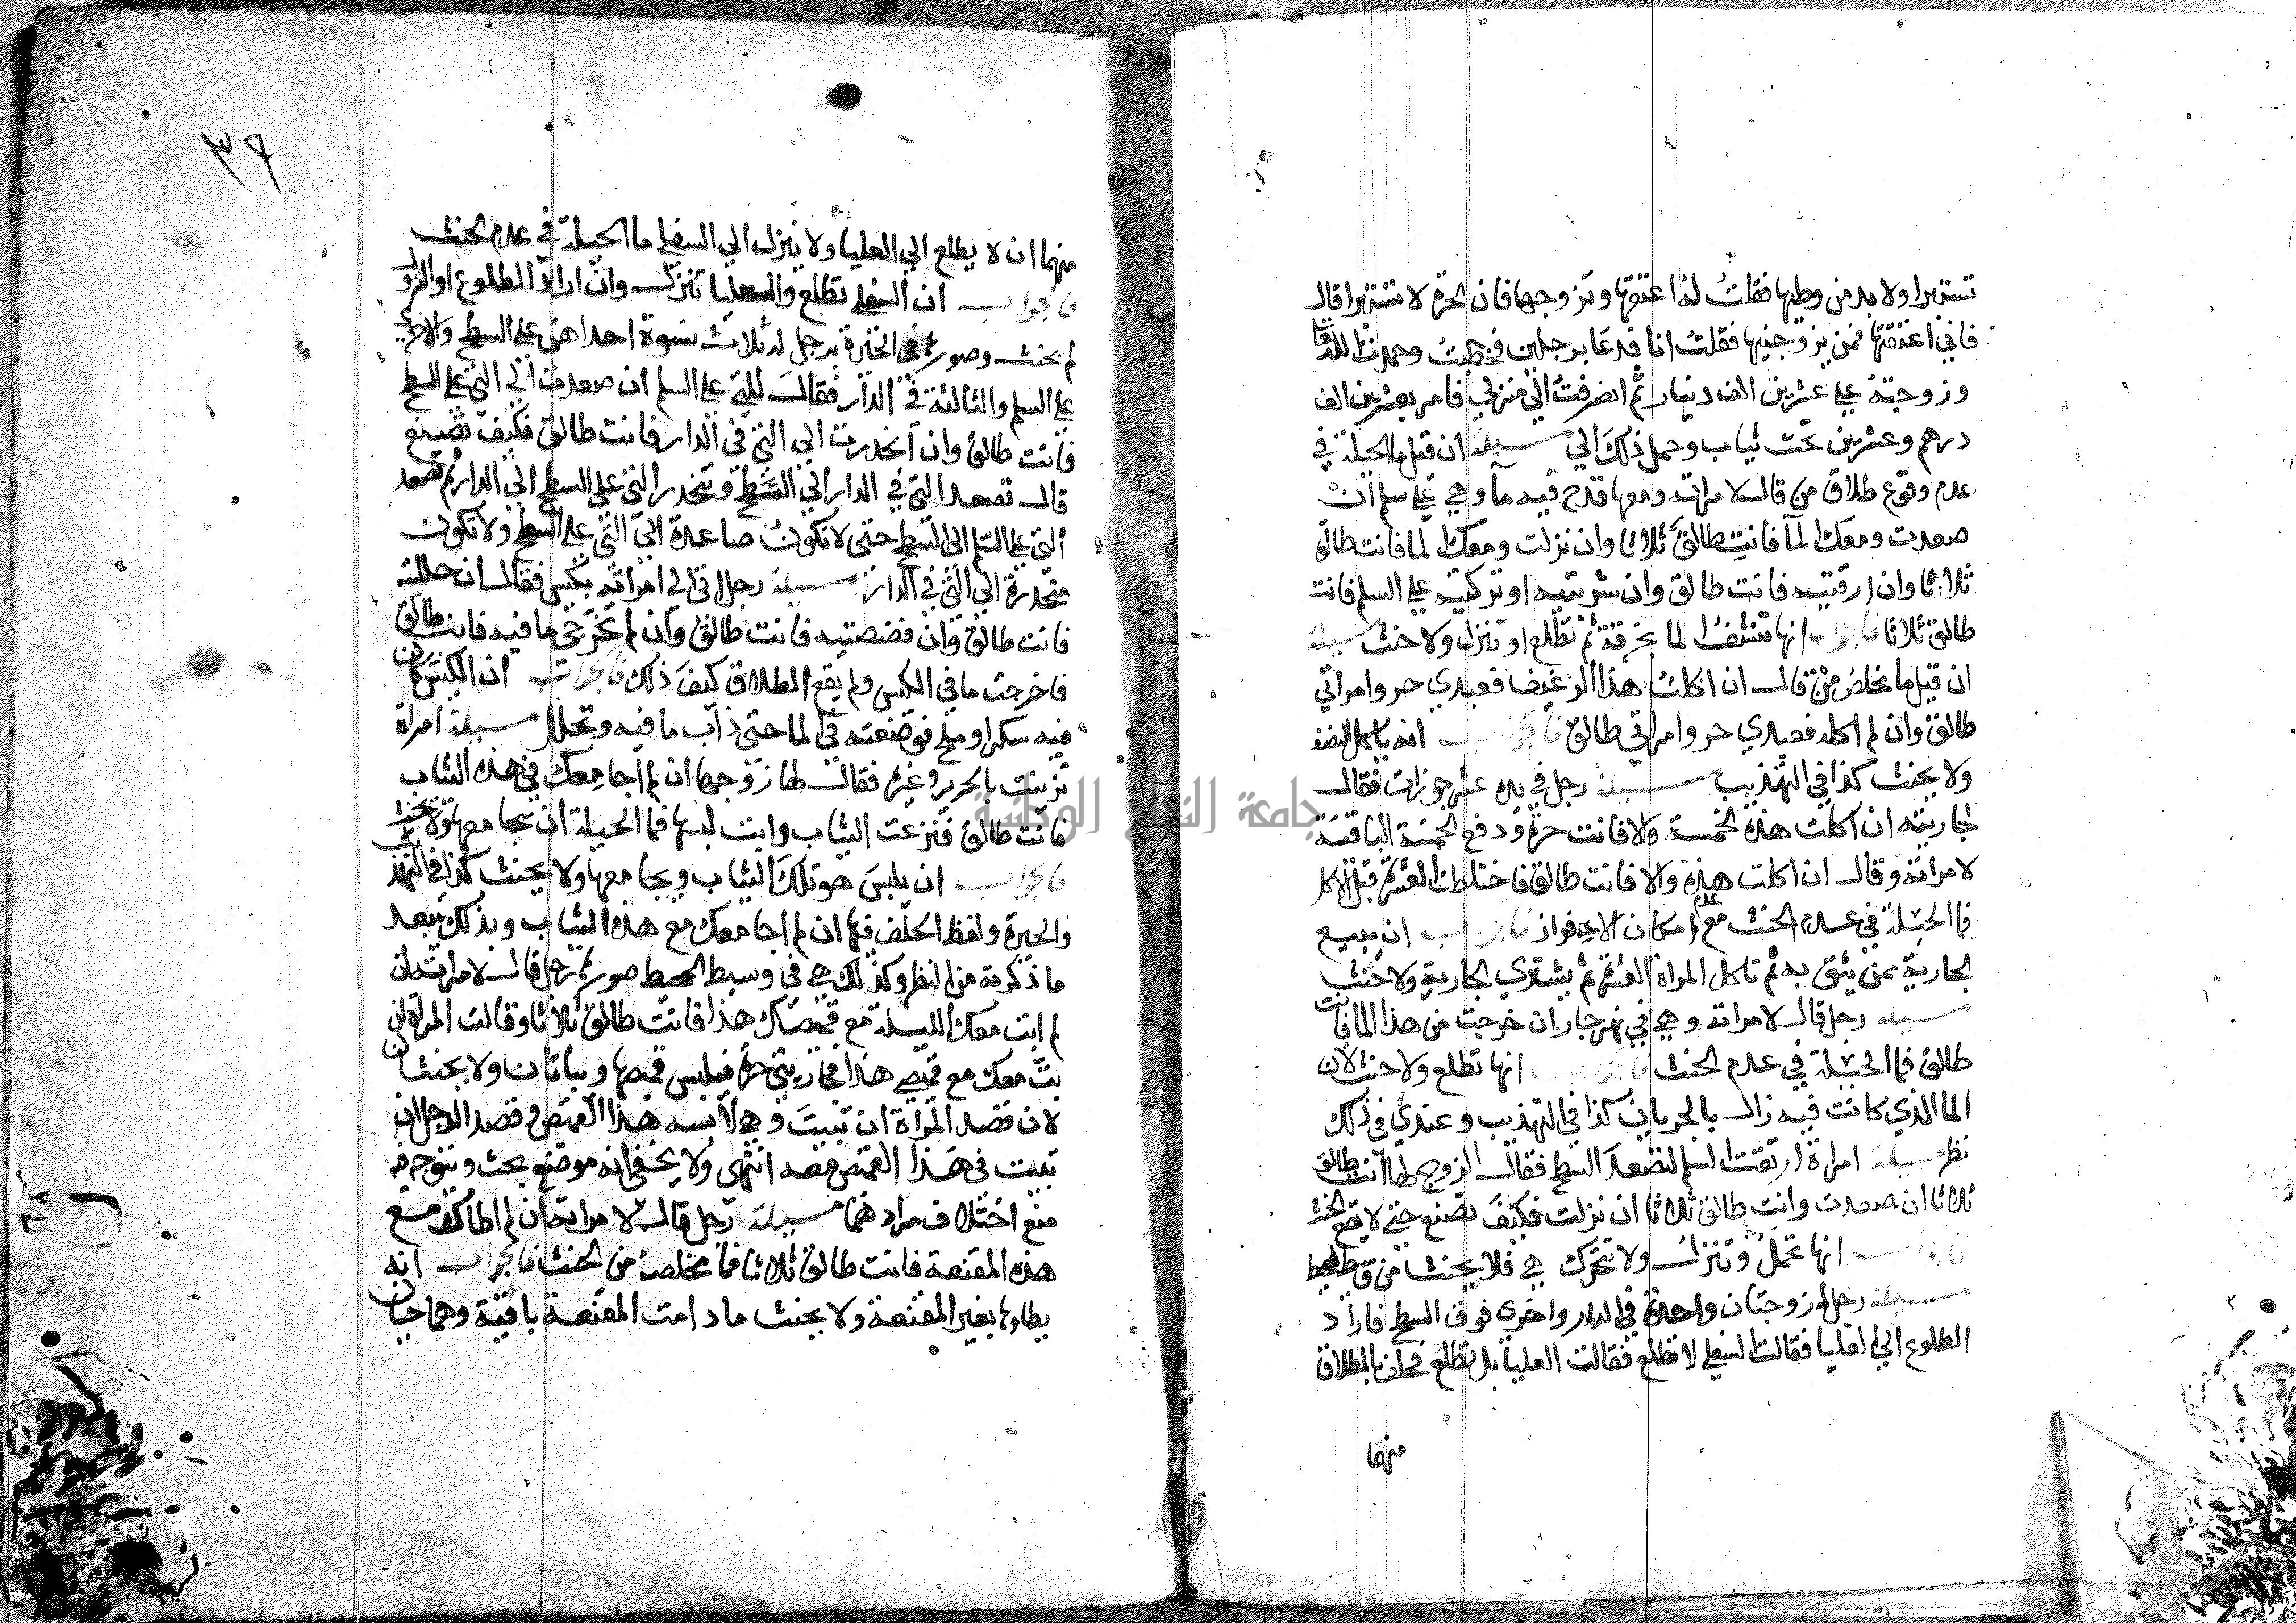 تستبرا ولا بد من وطيها فقلتُ له اعتقها وتزوجها فان الحرة لا تستبرا قال
فاني اعتقتها فمن يزوجنيها فقلت انا فدعا برجلين فخطبتُ وحمدت الله تعا
وزوجته علي عشرين الف دينار ثم انصرفتُ الي منزلي فامر بعشرين الف
درهم وعشرين تخت ثياب وحمل ذلك الي مسيلة ان قيل ما الحيلة في
عدم وقوع طلاق من قال لامراته ومعها قدح فيه ما وهي علي سلم ان
صعدت ومعك الما فانت طالق ثلاثا وان نزلت ومعك الما فانت طالق
ثلاثا وان ارقتيه فانت طالق وان شربتيه او تركتيه علي السلم فانت
طالق ثلاثا فالجواب انها تنشف الما بخرقة ثم تطلع او تنزل ولا حنث مسيلة
ان قيل ما مخلص من قال ان اكلت هذا الرغيف فعبدي حر وامراتي
طالق وان لم اكله فعبدي حر وامراتي طالق فالجواب انه ياكل النصف
ولا يحنث كذا في التهذيب مسيلة رجل في يده عشر جوزات فقال
لجاريته ان اكلت هذه الخمسة والا فانت حرة ودفع الخمسة الباقية
لامراته وقال ان اكلت هذه والا فانت طالق فاختلطت العشرة قبل الاكل
فما الحيلة في عدم الحنث مع عدم امكان الافراز فالجواب ان يبيع
الجارية ممن يثق به ثم تاكل المراة العشرة ثم يشتري الجارية ولا حنث
مسيلة رجل قال لامراته وهي في نهر جار ان خرجت من هذا الما فانت
طالق فما الحيلة في عدم الحنث فالجواب انها تطلع ولا حنث لان
الما الذي كانت فيه زال بالجريان كذا في التهذيب وعندي في ذلك
نظر مسيلة امراة ارتقت السلم لتصعد السطح فقال الزوج لها انت طالق
ثلاثا ان صعدت وانت طالق ثلاثا ان نزلت فكيف تصنع حتي لا يقع الحنث
فالجواب انها تحمل وتنزل ولا تتحرك هي فلا يحنث من
مسيلة رجل له زوجتان واحدة في الدار واخري فوق السطح فاراد
الطلوع الي العليا فقالت السفلي لا تطلع فقالت العليا بل تطلع فحلف بالطلاق
منهما
٣٩
منهما ان لا يطلع الي العليا ولا ينزل الي السفلي ما الحيلة في عدم الحنث
فالجواب ان السفلي تطلع والعليا تنزل وان اراد الطلوع او النزول
لم يحنث وصورته في الحيرة برجل له ثلاث نسوة احداهن علي السطح والاخري
علي السلم والثالثة في الدار فقال للتي علي السلم ان صعدت الي التي علي السطح
فانت طالق وان انحدرت الي التي في الدار فانت طالق فكيف تصنع
قال تصعد التي في الدار الي السطح وتنحدر التي علي السطح الي الدار ثم تصعد
التي علي السلم الي السطح حتي لا تكون صاعدة الي التي علي السطح ولا تكون
منحدرة الي التي في الدار مسيلة رجل اتي الي امراته بكيس فقال ان حللته
فانت طالق وان فضضتيه فانت طالق وان لم تخرجي ما فيه فانت طالق
فاخرجت ما في الكيس ولم يقع الطلاق كيف ذلك فالجواب ان الكيس كان
فيه سكر او ملح فوضعته في الما حتي ذاب ما فيه وتحلل مسيلة امراة
تزينت بالحرير وغيره فقال لها زوجها ان لم اجامعك في هذه الثياب
فانت طالق فنزعت الثياب وابت لبسها فما الحيلة ان يجامعها ولا يحنث
فالجواب ان يلبس هو تلك الثياب ويجامعها ولا يحنث كذا في التهذيب
والحيرة ولفظ الحلف فيها ان لم اجامعك مع هذه الثياب وبذلك يبعد
ما ذكرته من النظر وكذلك هي في وسيط المحيط صورته رجل قال لامراته ان
لم ابت معك الليلة مع قميصك هذا فانت طالق ثلاثا وقالت المراة ان
بت معك مع قميصي هذا فجاريتي حرة فيلبس قميصها ويباتان ولا يحنثان
لان قصد المراة ان تبيت وهي لابسه هذا القميص وقصد الرجل ان
تبيت في هذا القميص معه انتهي ولا يخفي انه موضع بحث ويتوجه فيه
منع اختلاف مرادهما مسيلة رجل قال لامراته ان لم اطاك مع
هذه المقنعة فانت طالق ثلاثا فما مخلصه من الحنث فالجواب انه
يطاوها بغير المقنعة ولا يحنث ما دامت المقنعة باقية وهما حيان
جامعة النجاح الوطنية